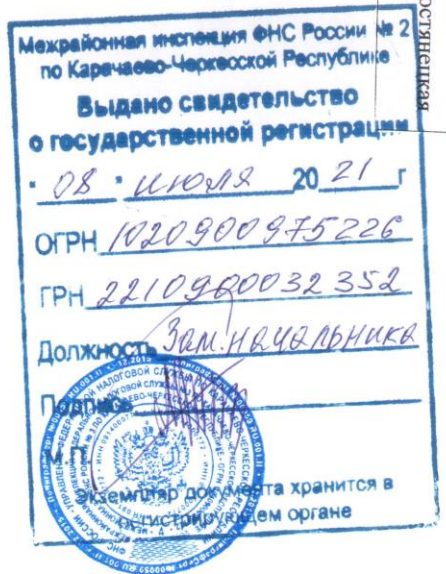 Межрайонная инспекция ФНС России № 2
по Карачаево-Черкесской Республике
Выдано свидетельство
о государственной регистрации
" 08 " июля 20 21 г
ОГРН 1020900975226
ГРН 2210900032352
Должность Зам.начальника
Подпись
М.П.
Экземпляр документа хранится в
регистрирующем органе
остянецкая